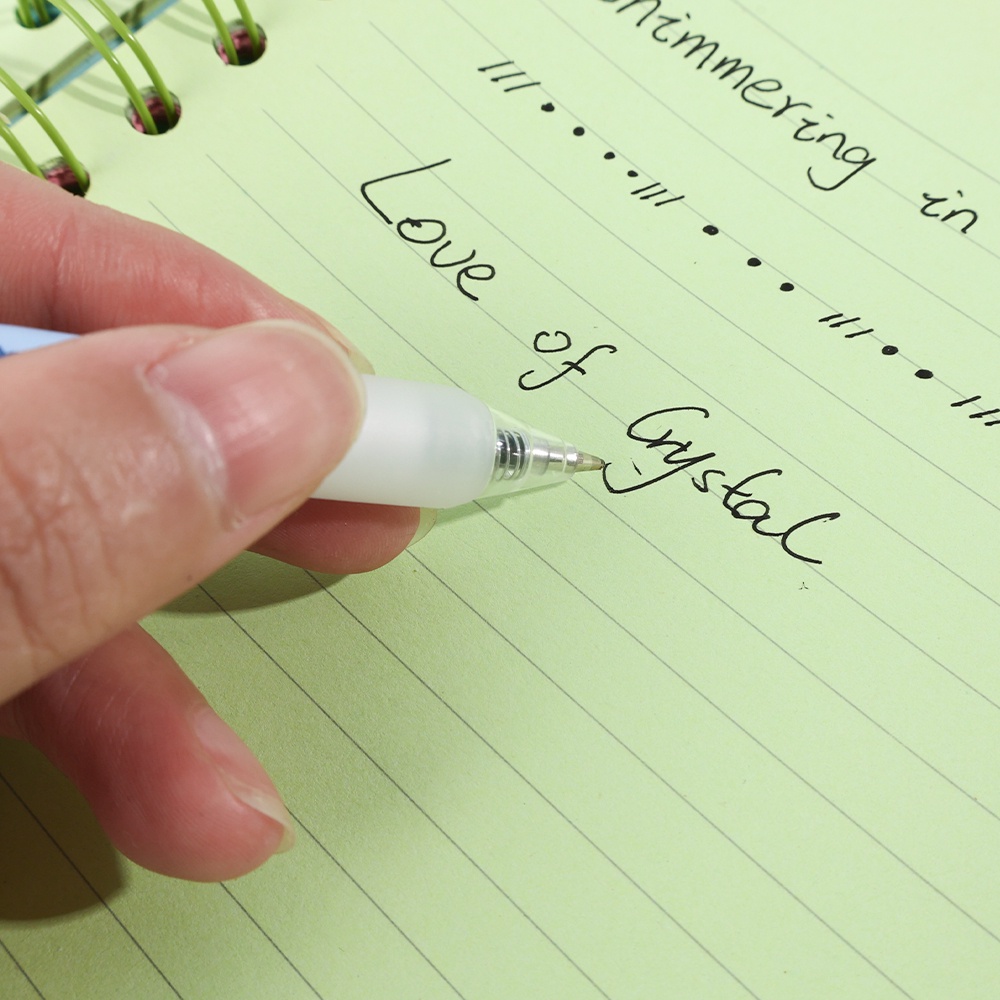 shimmering in
Love of Crystal